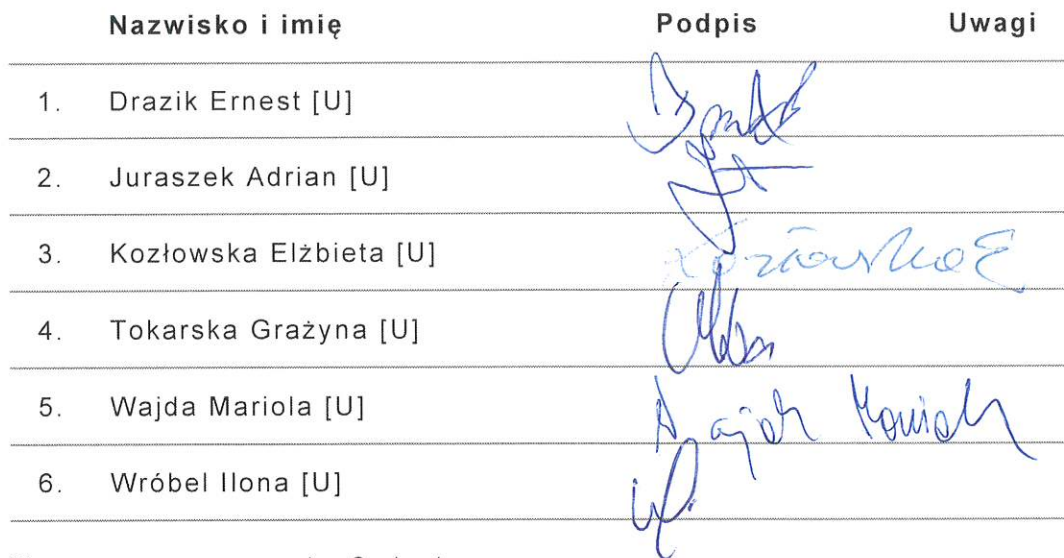 Nazwisko i imię Podpis Uwagi
1. Drazik Ernest [U]
2. Juraszek Adrian [U]
3. Kozłowska Elżbieta [U] Kozłowska E
4. Tokarska Grażyna [U]
5. Wajda Mariola [U] Wajda Mariola
6. Wróbel Ilona [U]